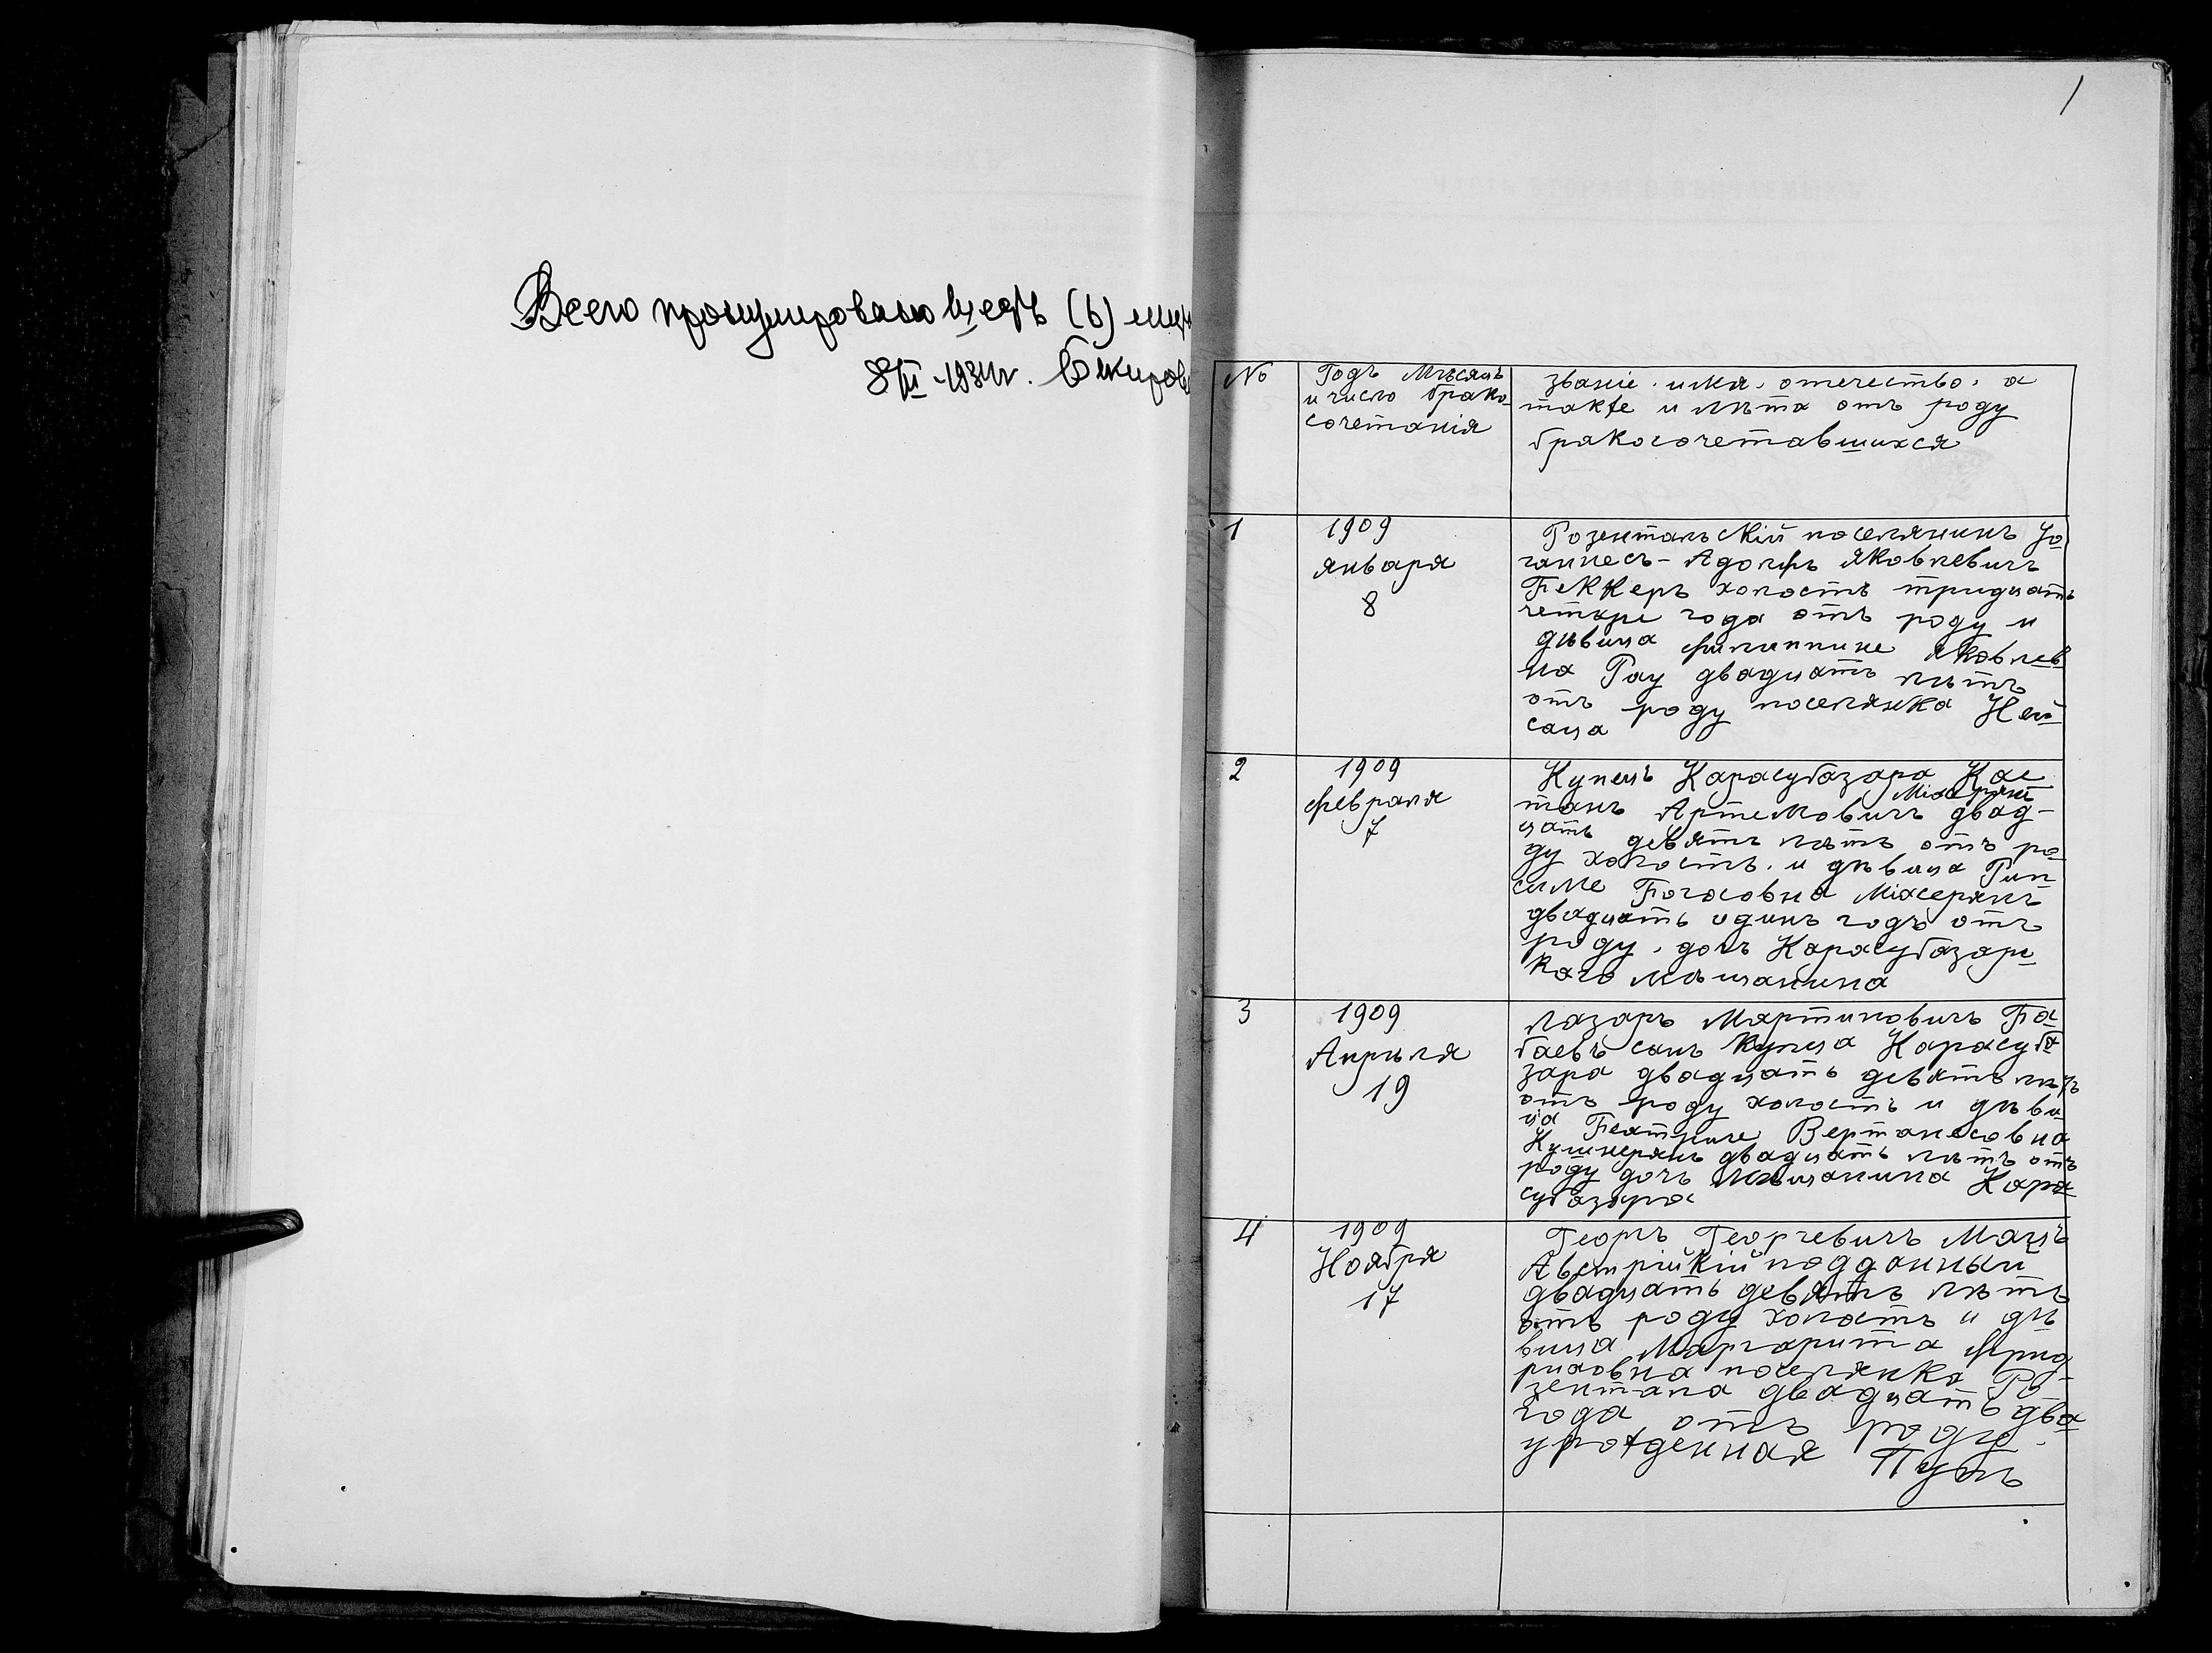 Всего пронумеровано шесть (6)
8/III - 1931 г. Бекиров
1
№
Годъ Мѣсяцъ
и число брако-
сочетанія
званіе. имя. отечество. а
также и лѣта отъ роду
бракосочетавшихся
1
1909
января
8
Розентальскій поселянинъ Ио
ганнесъ - Адольфъ Яковлевичъ
Беккеръ холостъ тридцать
четыре года отъ роду и
дѣвица Филиппине Яковлев
на Рау двадцать лѣтъ
отъ роду поселянка Ней
саца
2
1909
февраля
7
Купецъ Карасубазара Кас
Михсерянъ
танъ Артемовичъ двад-
цать девять лѣтъ отъ ро
ду холостъ. и дѣвица Рип
симе Богосовна Михсерянъ
двадцать одинъ годъ отъ
роду. дочь Карасубазарс
каго мѣщанина
3
1909
Апрѣля
19
Лазаръ Мартиновичъ Ба
баевъ сынъ купца Карасуба
зара двадцать девять лѣтъ
отъ роду холостъ и дѣви
ца Беатрисе Вертанесовна
Кушнерянъ двадцать лѣтъ отъ
роду дочь мѣщанина Кара
субазара
4
1909
Ноября
17
Георгъ Георгевичъ Мацъ
Австрійкій подданный
двадцать девять лѣтъ
отъ роду холостъ и дѣ
вица Маргарита Фрид
риховна поселянка Ро-
зентала двадцать два
года отъ роду.
урожденная